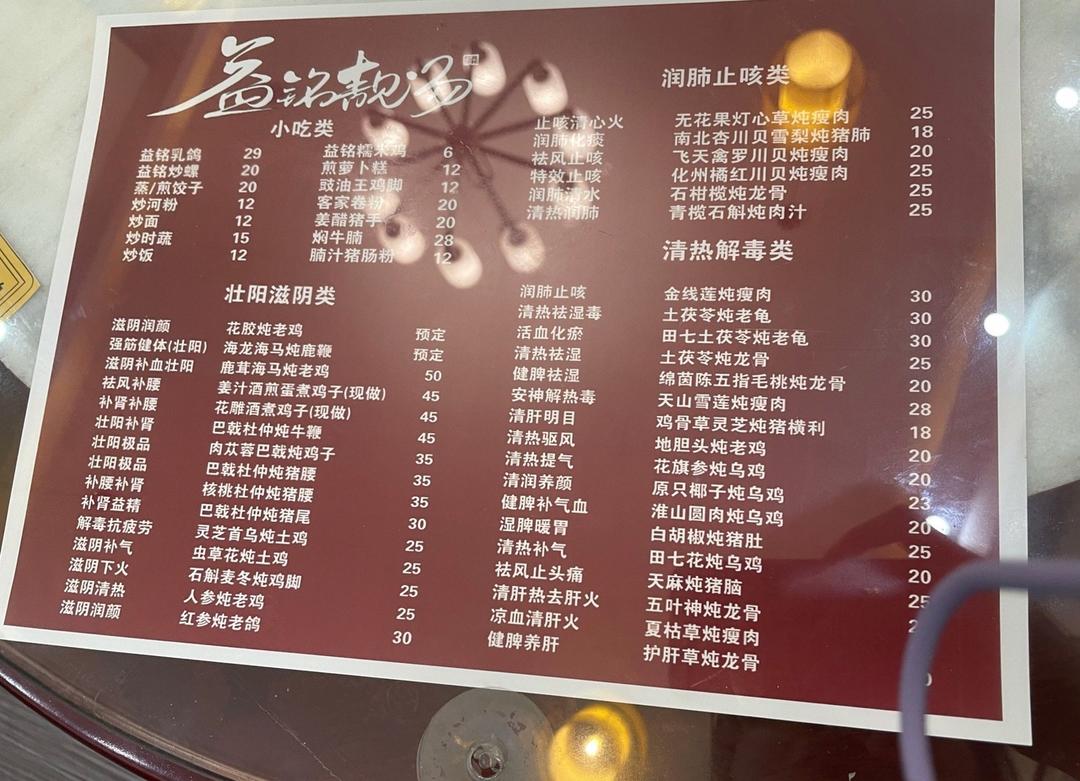 益铭靓汤
小吃类
益铭乳鸽 29 益铭糯米鸡 6
益铭炒螺 20 煎萝卜糕 12
蒸/煎饺子 20 豉油王鸡脚 12
炒河粉 12 客家卷粉 20
炒面 12 姜醋猪手 20
炒时蔬 15 焖牛腩 28
炒饭 12 腩汁猪肠粉 12
壮阳滋阴类
滋阴润颜 花胶炖老鸡 预定
强筋健体(壮阳) 海龙海马炖鹿鞭 预定
滋阴补血壮阳 鹿茸海马炖老鸡 50
祛风补腰 姜汁酒煎蛋煮鸡子(现做) 45
补肾补腰 花雕酒煮鸡子(现做) 45
壮阳补肾 巴戟杜仲炖牛鞭 45
壮阳极品 肉苁蓉巴戟炖鸡子 35
壮阳极品 巴戟杜仲炖猪腰 35
补腰补肾 核桃杜仲炖猪腰 35
补肾益精 巴戟杜仲炖猪尾 30
解毒抗疲劳 灵芝首乌炖土鸡 25
滋阴补气 虫草花炖土鸡 25
滋阴下火 石斛麦冬炖鸡脚 25
滋阴清热 人参炖老鸡 25
滋阴润颜 红参炖老鸽 30
润肺止咳类
止咳清心火 无花果灯心草炖瘦肉 25
润肺化痰 南北杏川贝雪梨炖猪肺 18
祛风止咳 飞天禽罗川贝炖瘦肉 20
特效止咳 化州橘红川贝炖瘦肉 25
润肺清水 石柑榄炖龙骨 25
清热润肺 青榄石斛炖肉汁 25
清热解毒类
润肺止咳 金线莲炖瘦肉 30
清热祛湿毒 土茯苓炖老龟 30
活血化瘀 田七土茯苓炖老龟 30
清热祛湿 土茯苓炖龙骨 25
健脾祛湿 绵茵陈五指毛桃炖龙骨 20
安神解热毒 天山雪莲炖瘦肉 28
清肝明目 鸡骨草灵芝炖猪横利 18
清热驱风 地胆头炖老鸡 20
清热提气 花旗参炖乌鸡 20
清润养颜 原只椰子炖乌鸡 23
健脾补气血 淮山圆肉炖乌鸡 20
湿脾暖胃 白胡椒炖猪肚 25
清热补气 田七花炖乌鸡 20
祛风止头痛 天麻炖猪脑 25
清肝热去肝火 五叶神炖龙骨
凉血清肝火 夏枯草炖瘦肉
健脾养肝 护肝草炖龙骨